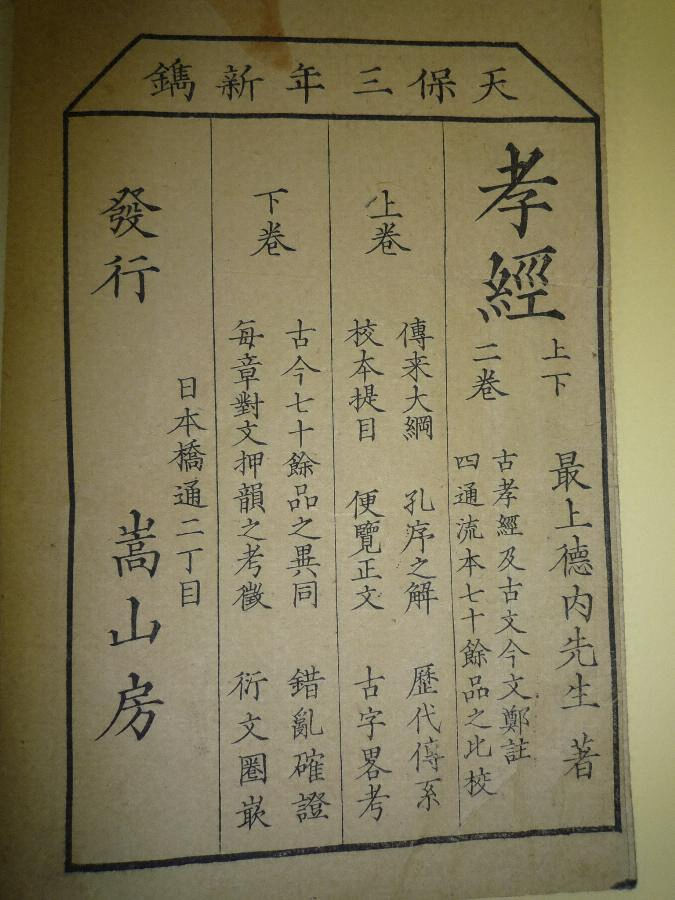 天保三年新鐫
最上德内先生 著
孝經 上下二卷
古孝經及古文今文鄭註
四通流本七十餘品之比校
上卷
傳来大綱 孔序之解 歷代傳系
校本提目 便覽正文 古字畧考
下卷
古今七十餘品之異同 錯亂確證
每章對文押韻之考徵 衍文圈嵌
日本橋通二丁目
發行 嵩山房